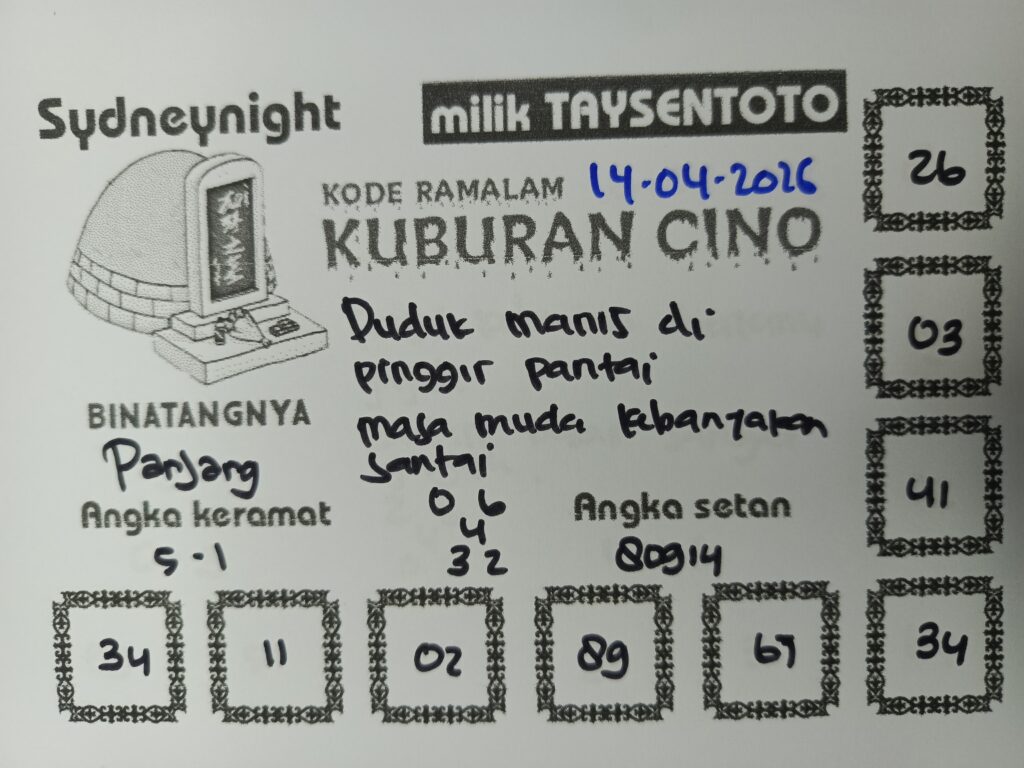 Sydneynight
milik TAYSENTOTO
KODE RAMALAM 14-04-2026
KUBURAN CINO
Duduk manis di
pinggir pantai
masa muda kebanyaken
santai
BINATANGNYA
Panjang
Angka keramat
5-1
0 6
4
3 2
Angka setan
80914
26
03
41
34
11
02
89
67
34